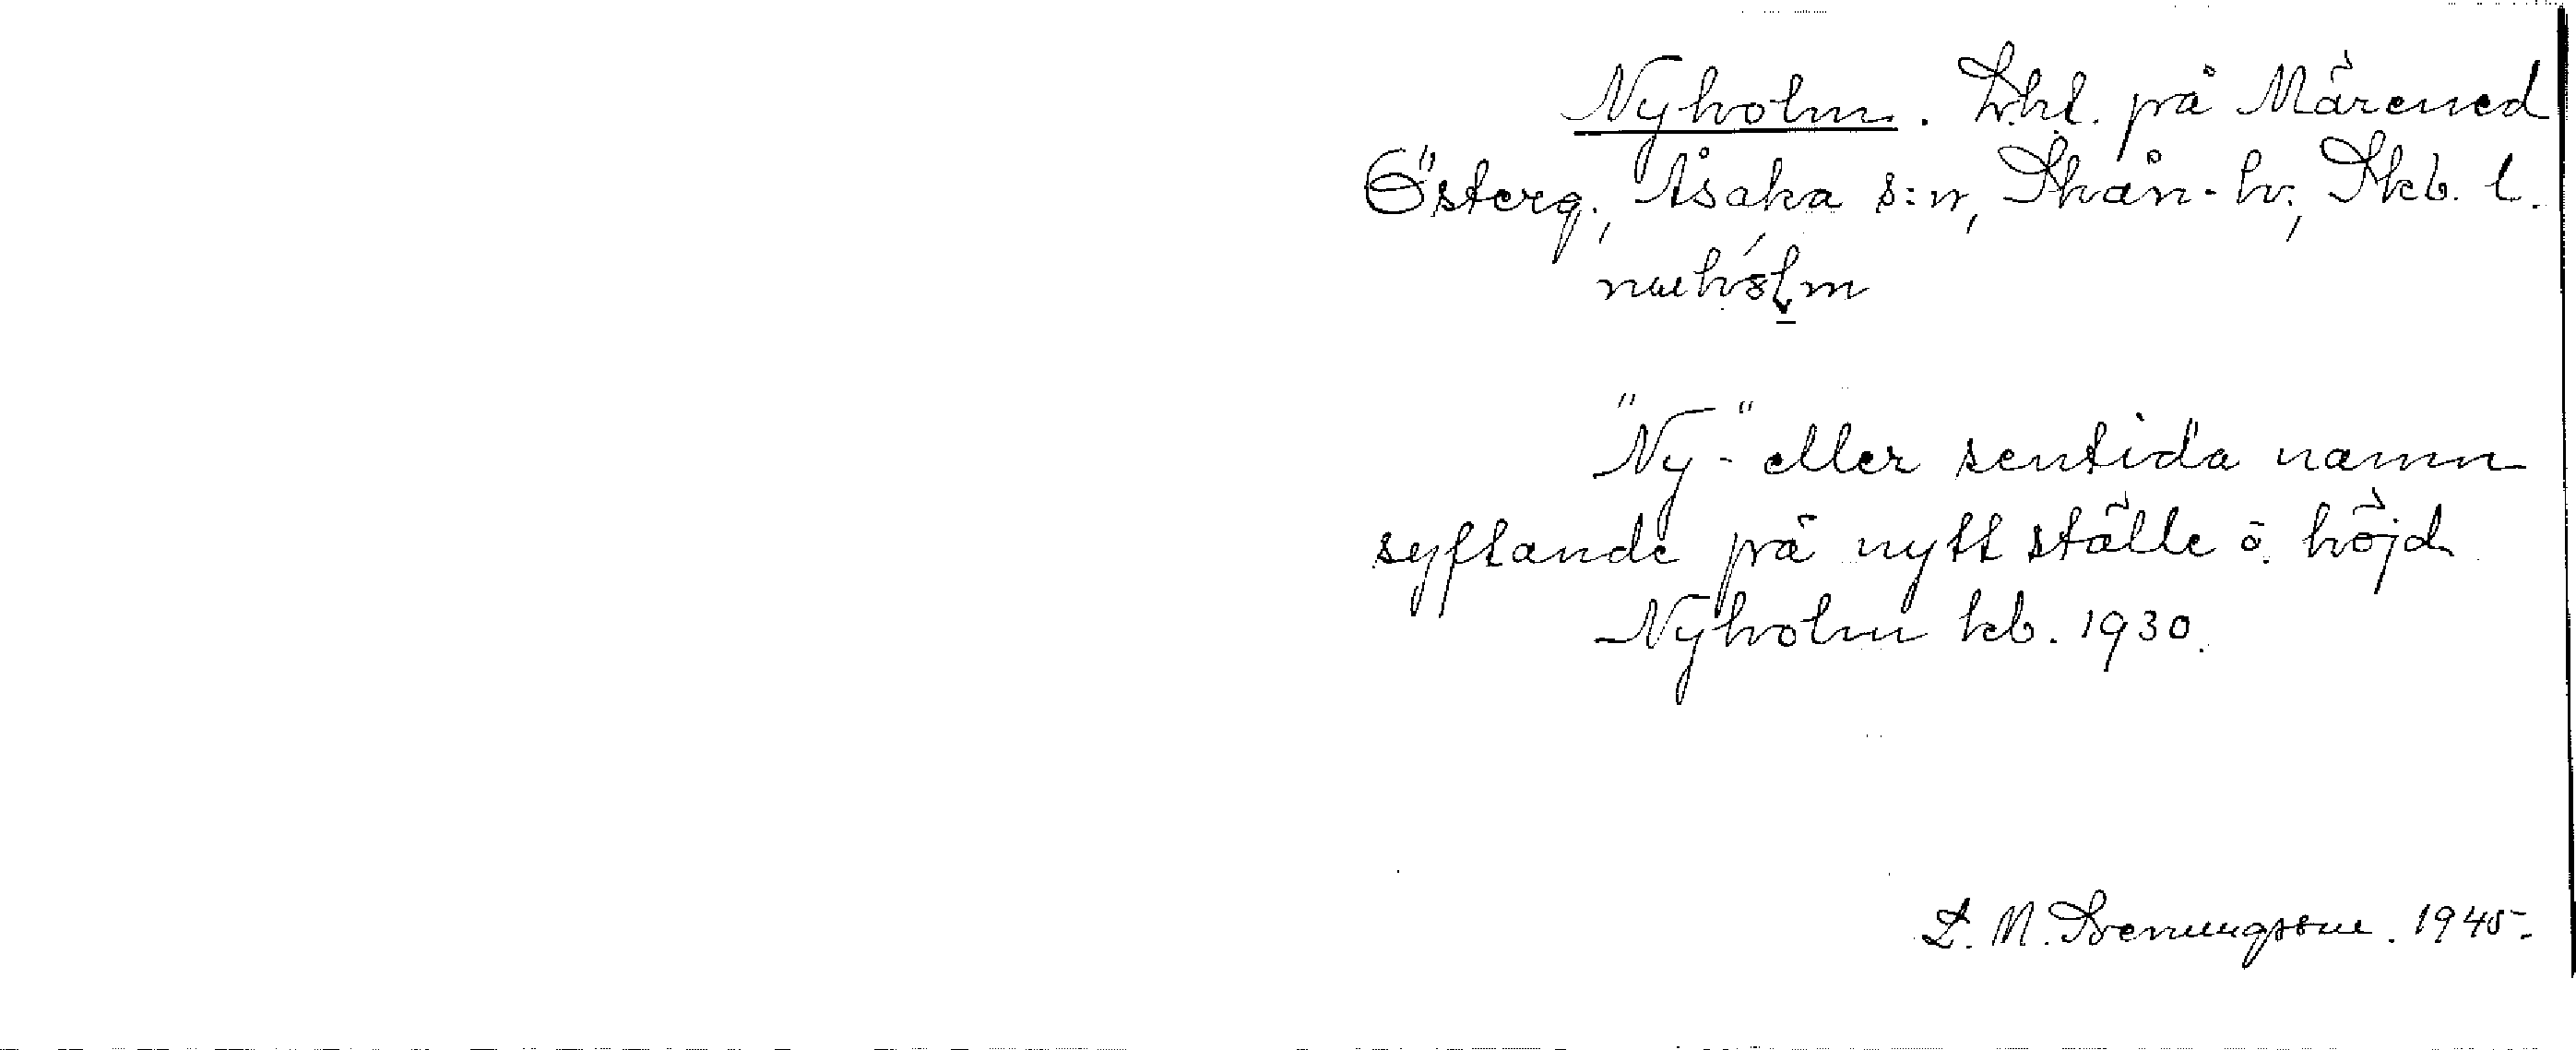 Nyholm. Lht. på Märened
Österg., Åsaka s:n, Skån. hd., Skb. l.
"Ny-" eller sentida namn
syftande på nytt ställe o. höjd
Nyholm kb. 1930.
L. M. Svenungsson. 1945.